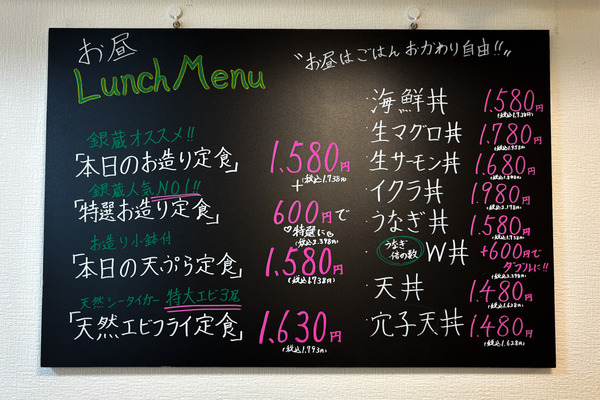 お昼
Lunch Menu
"お昼はごはん おかわり自由!!"
銀蔵オススメ!!
「本日のお造り定食」 1.580円
(税込1.738円)
銀蔵人気NO1!!
+
「特選お造り定食」 600円で
♡特選に♡
(税込2.398円)
お造り小鉢付
「本日の天ぷら定食」 1.580円
(税込1.738円)
天然シータイガー 特大エビ3尾
「天然エビフライ定食」 1.630円
(税込1.793円)
海鮮丼 1.580円
(税込1.738円)
生マグロ丼 1.780円
(税込1.958円)
生サーモン丼 1.680円
(税込1.848円)
イクラ丼 1.980円
(税込2.178円)
うなぎ丼 1.580円
(税込1.738円)
うなぎ倍の数 W丼 +600円で
ダブルに!!
(税込2.398円)
天丼 1.480円
(税込1.628円)
穴子天丼 1.480円
(税込1.628円)